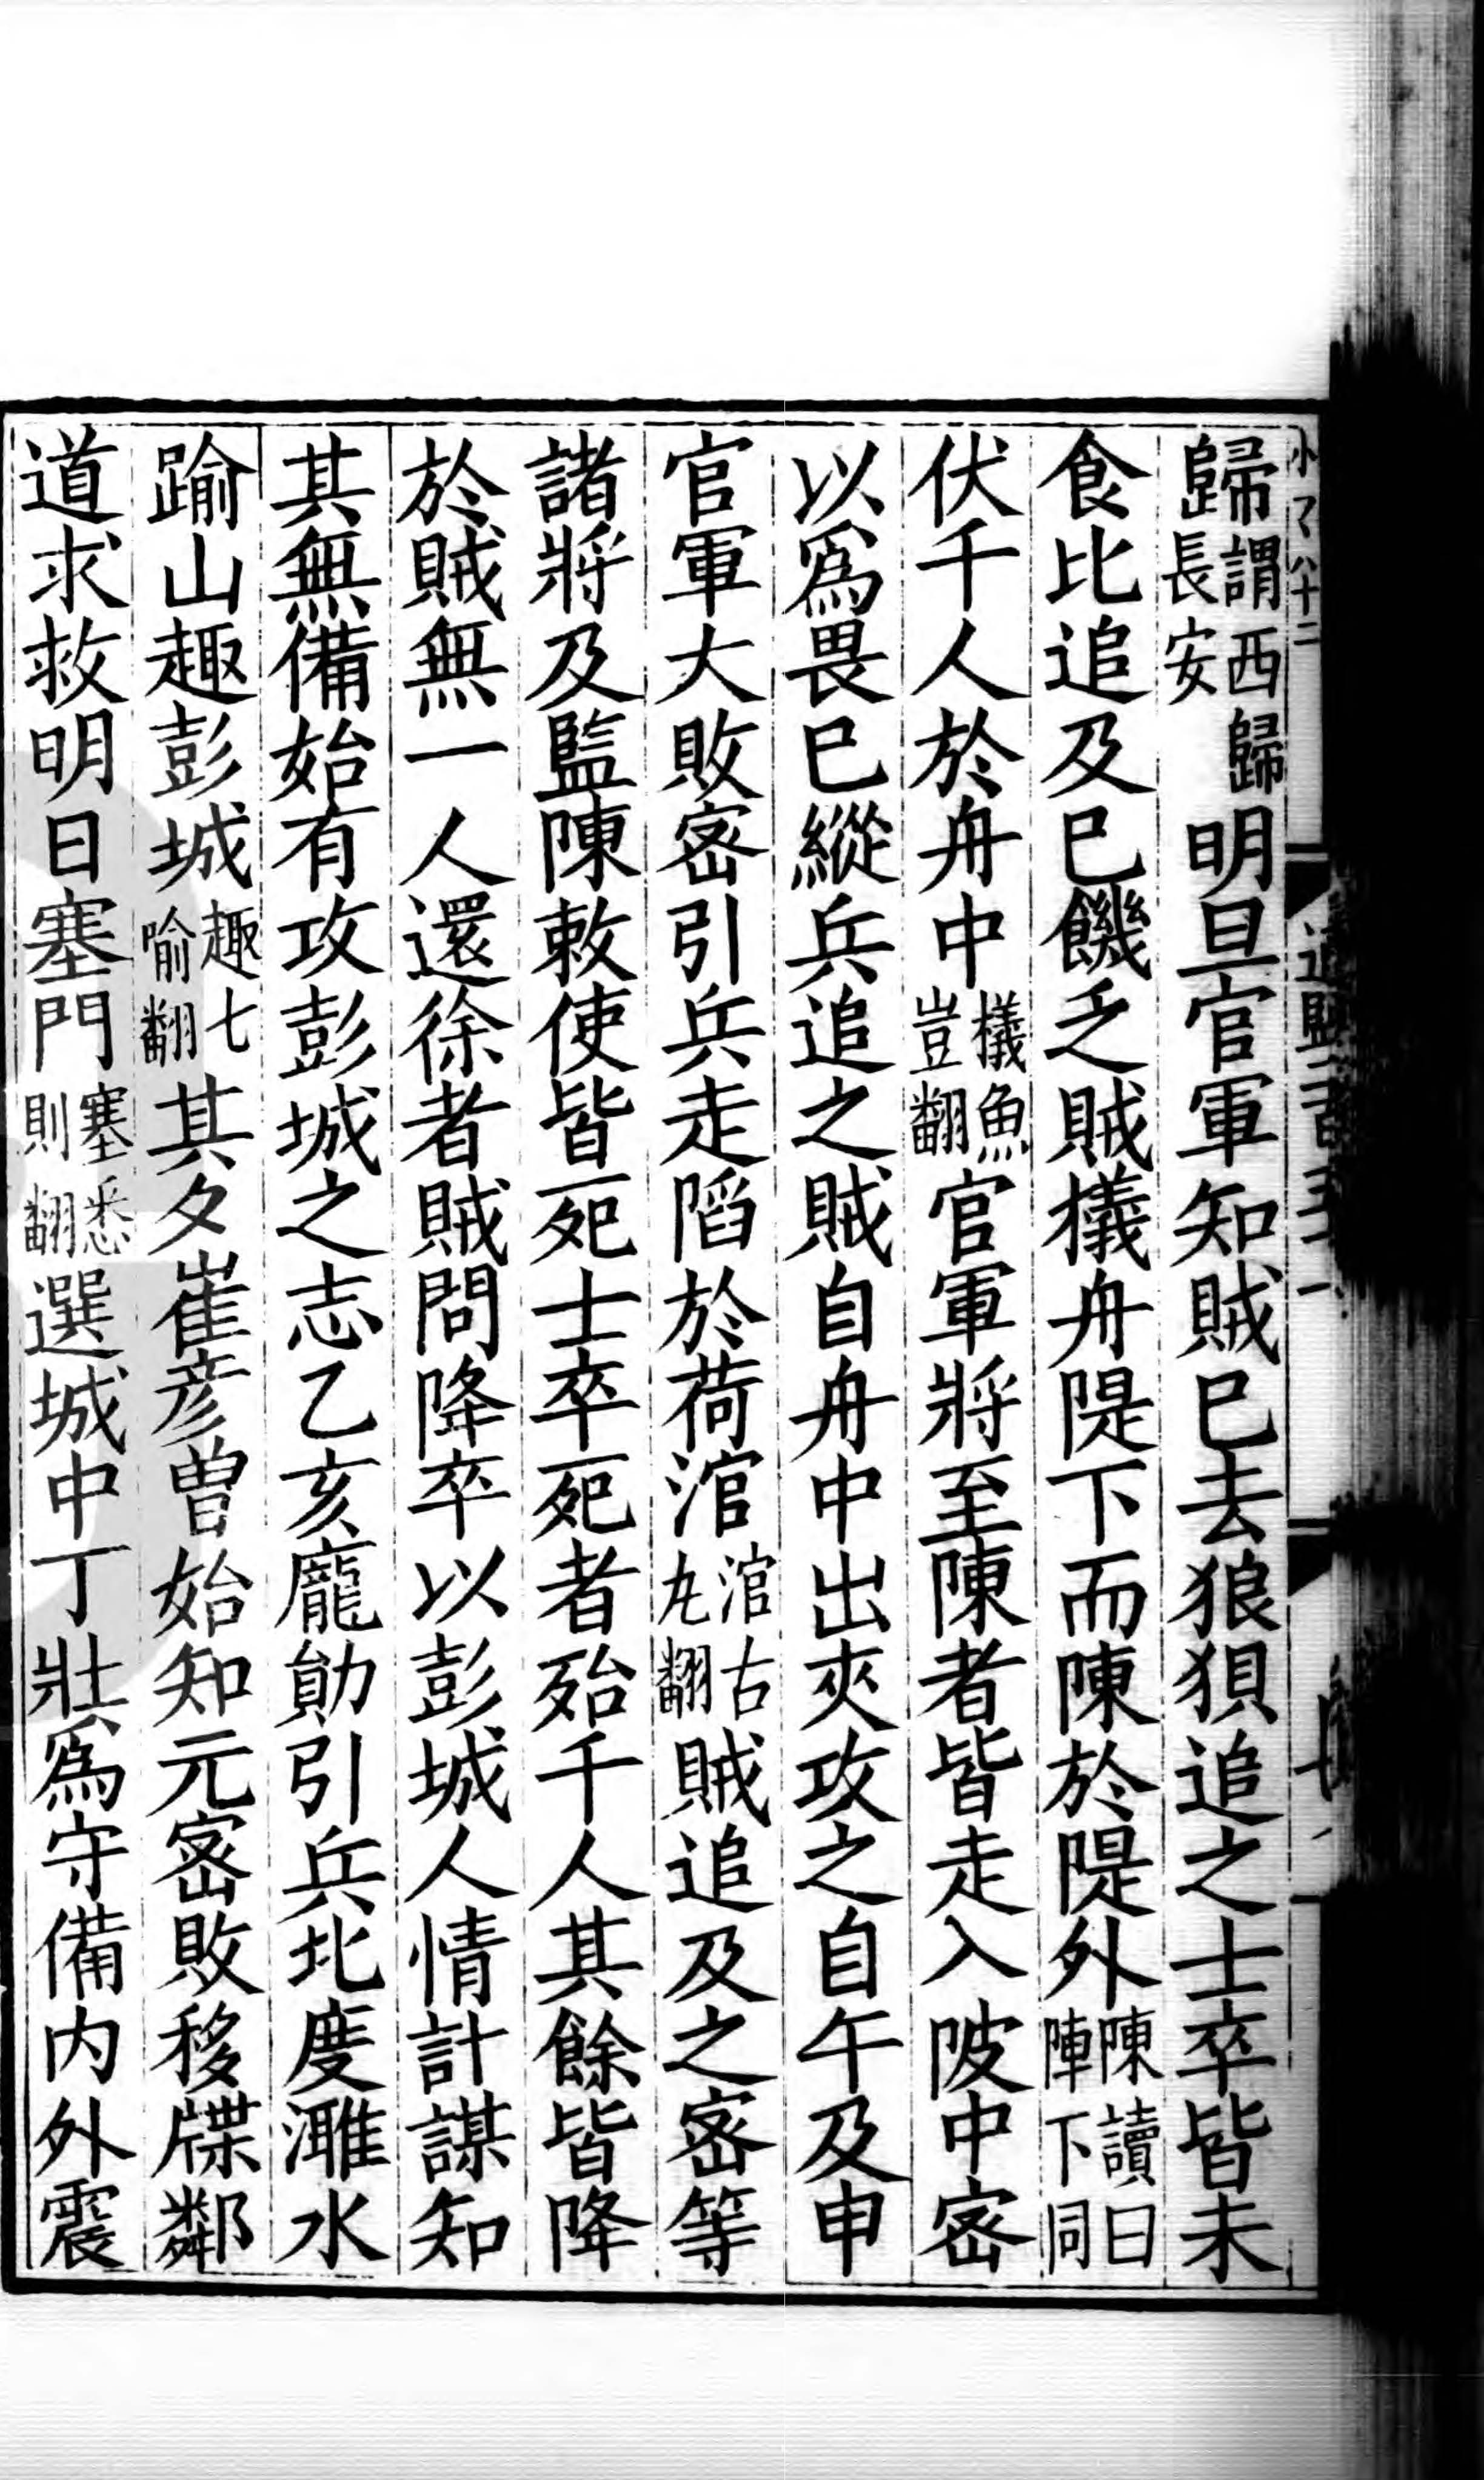 歸謂西歸長安明旦官軍知賊已去狼狽追之士卒皆未
食比追及已饑乏賊檥舟隄下而陳於隄外陳讀曰陣下同
伏千人於舟中檥魚豈翻官軍將至陳者皆走入陂中密
以爲畏已縱兵追之賊自舟中出夾攻之自午及申
官軍大敗密引兵走陷於荷涫涫古丸翻賊追及之密等
諸將及監陳敕使皆死士卒死者殆千人其餘皆降
於賊無一人還徐者賊問降卒以彭城人情計謀知
其無備始有攻彭城之志乙亥龐勛引兵北度濉水
踰山趣彭城趣七喻翻其夕崔彥曾始知元密敗移牒鄰
道求救明日塞門塞悉則翻選城中丁壯爲守備内外震